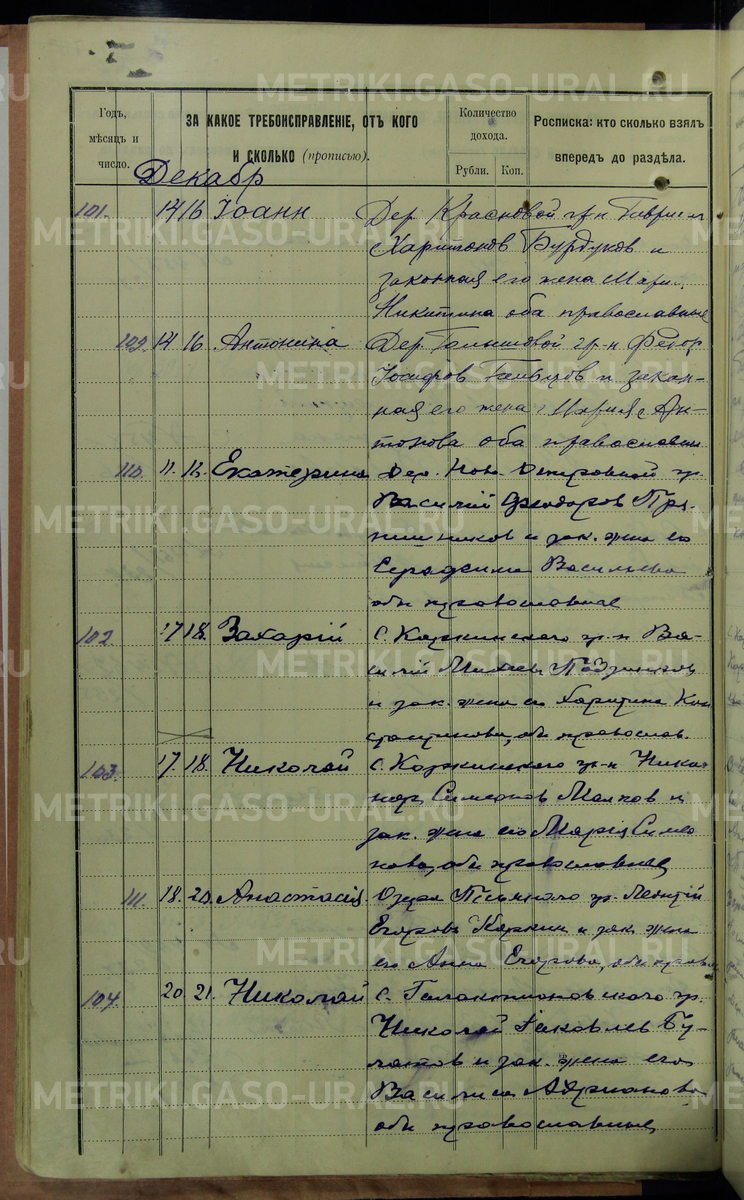 Годъ, мѣсяцъ и число.
ЗА КАКОЕ ТРЕБОИСПРАВЛЕНІЕ, ОТЪ КОГО
И СКОЛЬКО (прописью).
Количество дохода.
Рубли. Коп.
Росписка: кто сколько взялъ
впередъ до раздѣла.
Декабр
101. 14 16 Іоанн Дер. Красновой гр-н Гавриил
Харитонов Бурдуков и
законная его жена Мари
Никитина оба православные
109. 14 16 Антонина Дер. гр-н Федор
Иосифов и закон-
ная его жена Мария Ан-
тонова оба православн
110. 11. 13. Екатерина Дер. Ново гр.
Василій Феодоров
и зак. жена его
Серафима Васильева
оба православные
102 17 18. Захарій С. Коркинского гр-н Ва-
силій
и зак. жена его Харитина Кон
стантинова, оба православ.
103. 17. 18. Николай С. Коркинского гр-н Ника-
нор Симеонов и
зак. жена его Марія Симе
онова, оба православные
111. 18. 20. Анастасія гр. Леонтій
Егоров Коркин и зак. жена
его Анна Егорова, оба правос
104. 20. 21. Николай С. Галактионовского гр.
Николай Яковлев Бу-
латов и зак. жена его
Василиса Адрианова
оба православные
METRIKI.GASO-URAL.RU